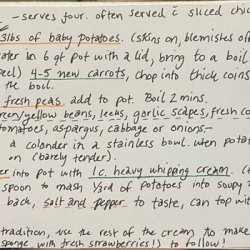 - serves four. often served c̄ sliced chic
3lbs of baby potatoes. (skins on, blemishes of
ater in 6 qt pot with a lid, bring to a boil
peel) 4-5 new carrots, chop into thick coins
the boil.
fresh peas. add to pot. Boil 2 mins.
green/yellow beans, leeks, garlic scapes, fresh co
tomatoes, asparagus, cabbage or onions-
a colander in a stainless bowl. when potat
on (barely tender).
er into pot with 1 c. heavy whipping cream. (
spoon to mash ⅓rd of potatoes into soupy
back, salt and pepper to taste, can top wit
tradition, use the rest of the cream to make
sponge, with fresh strawberries!) to follow!